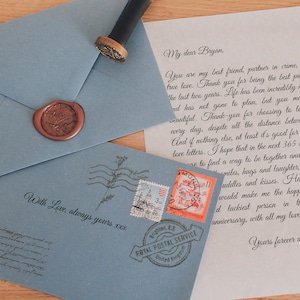 My dear Bryan,
You are my best friend, partner in crime,
true love. Thank you for being the best par
the last two years. Life has been incredibly
and has not gone to plan, but you ma
beautiful. Thank-you for choosing to l
every day, despite all the distance betwe
And if nothing else, at least it's good for
love letters. I hope that in the next 365
to find a way to be together an
laughs and laughte
cuddles and kisses. H
would make me the happ
luckiest person in t
anniversary, with all my lov
Yours forever a
With Love, always yours xxx
ROYAL POSTAL SERVICE